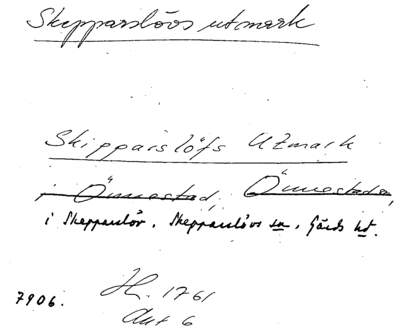 Skepparslövs utmark
Skipparslöfs Utmark
i Önnestad, Önnestaden,
i Skepparslöv, Skepparslövs sn, Gärds hd.
7906.
H. 1761
Akt 6